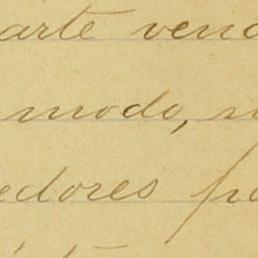 arte vend
modo,
edores pa